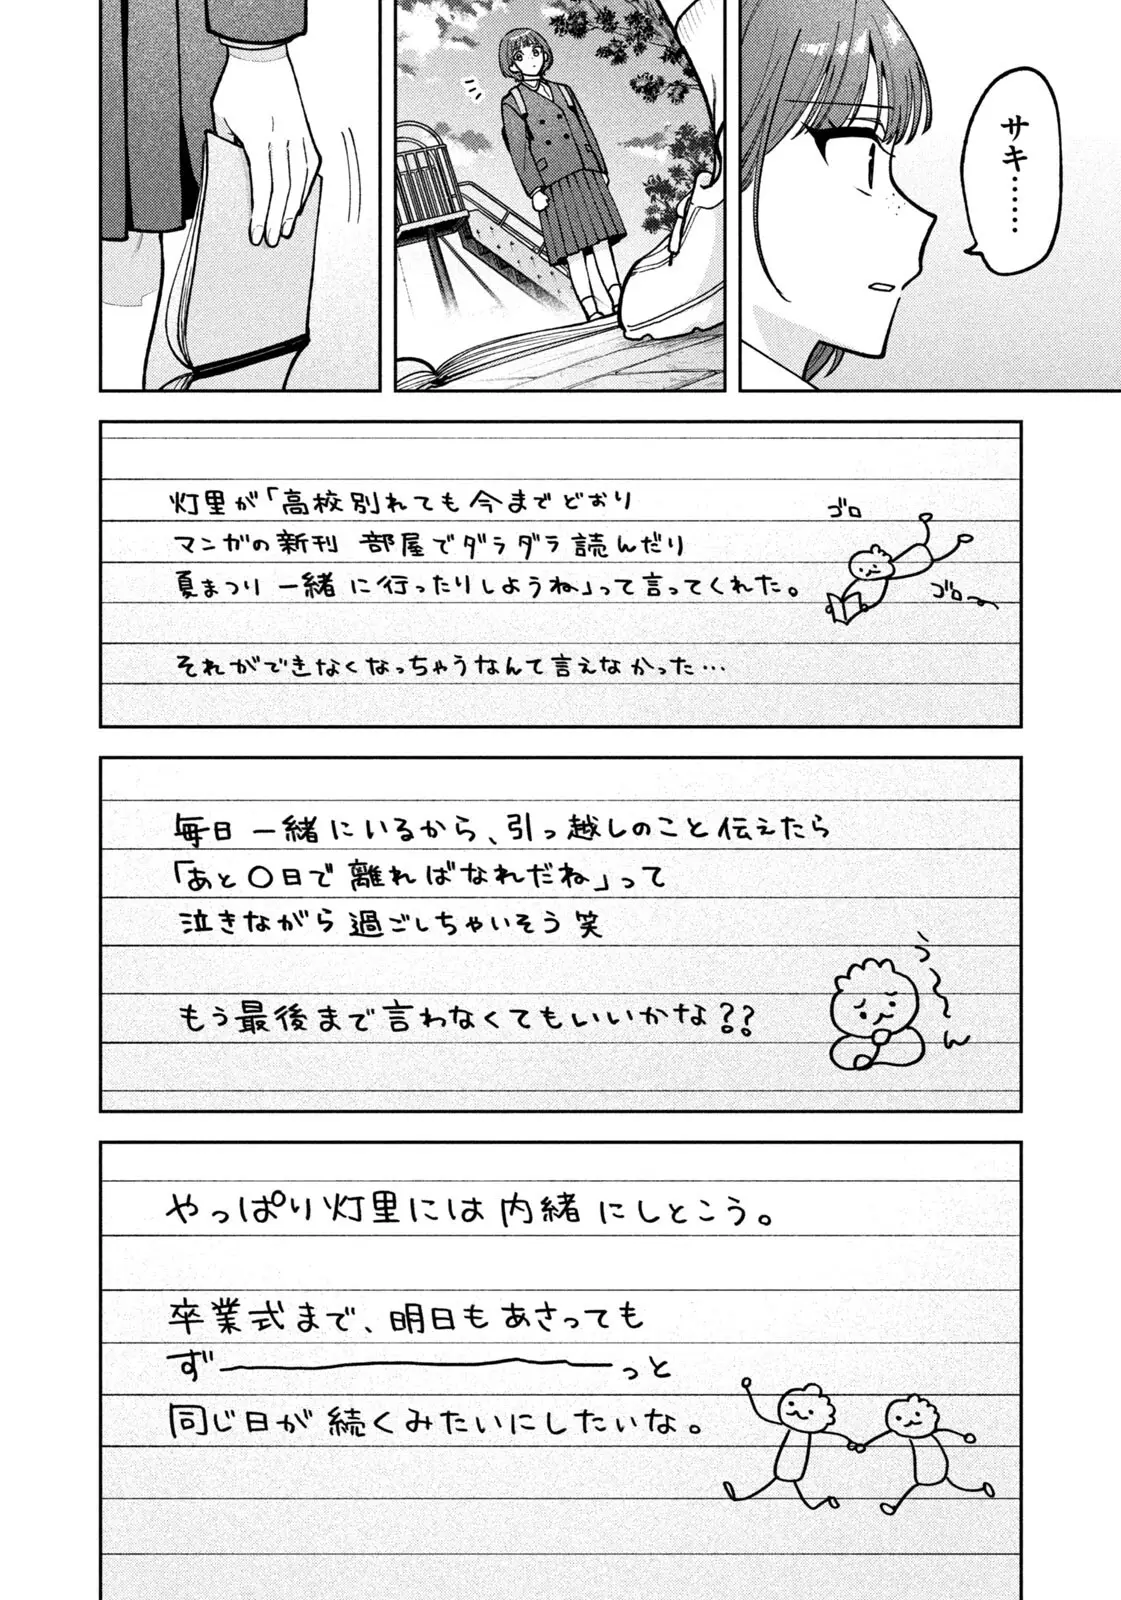 サキ……
灯里が「高校別れても今までどおり
マンガの新刊 部屋でダラダラ読んだり
夏まつり一緒に行ったりしようね」って言ってくれた。
ゴロ
ゴロ〜
それができなくなっちゃうなんて言えなかった…
毎日一緒にいるから、引っ越しのこと伝えたら
「あと〇日で離ればなれだね」って
泣きながら過ごしちゃいそう笑
もう最後まで言わなくてもいいかな??
う〜〜ん
やっぱり灯里には内緒にしとこう。
卒業式まで、明日もあさっても
ず――――――――っと
同じ日が続くみたいにしたいな。